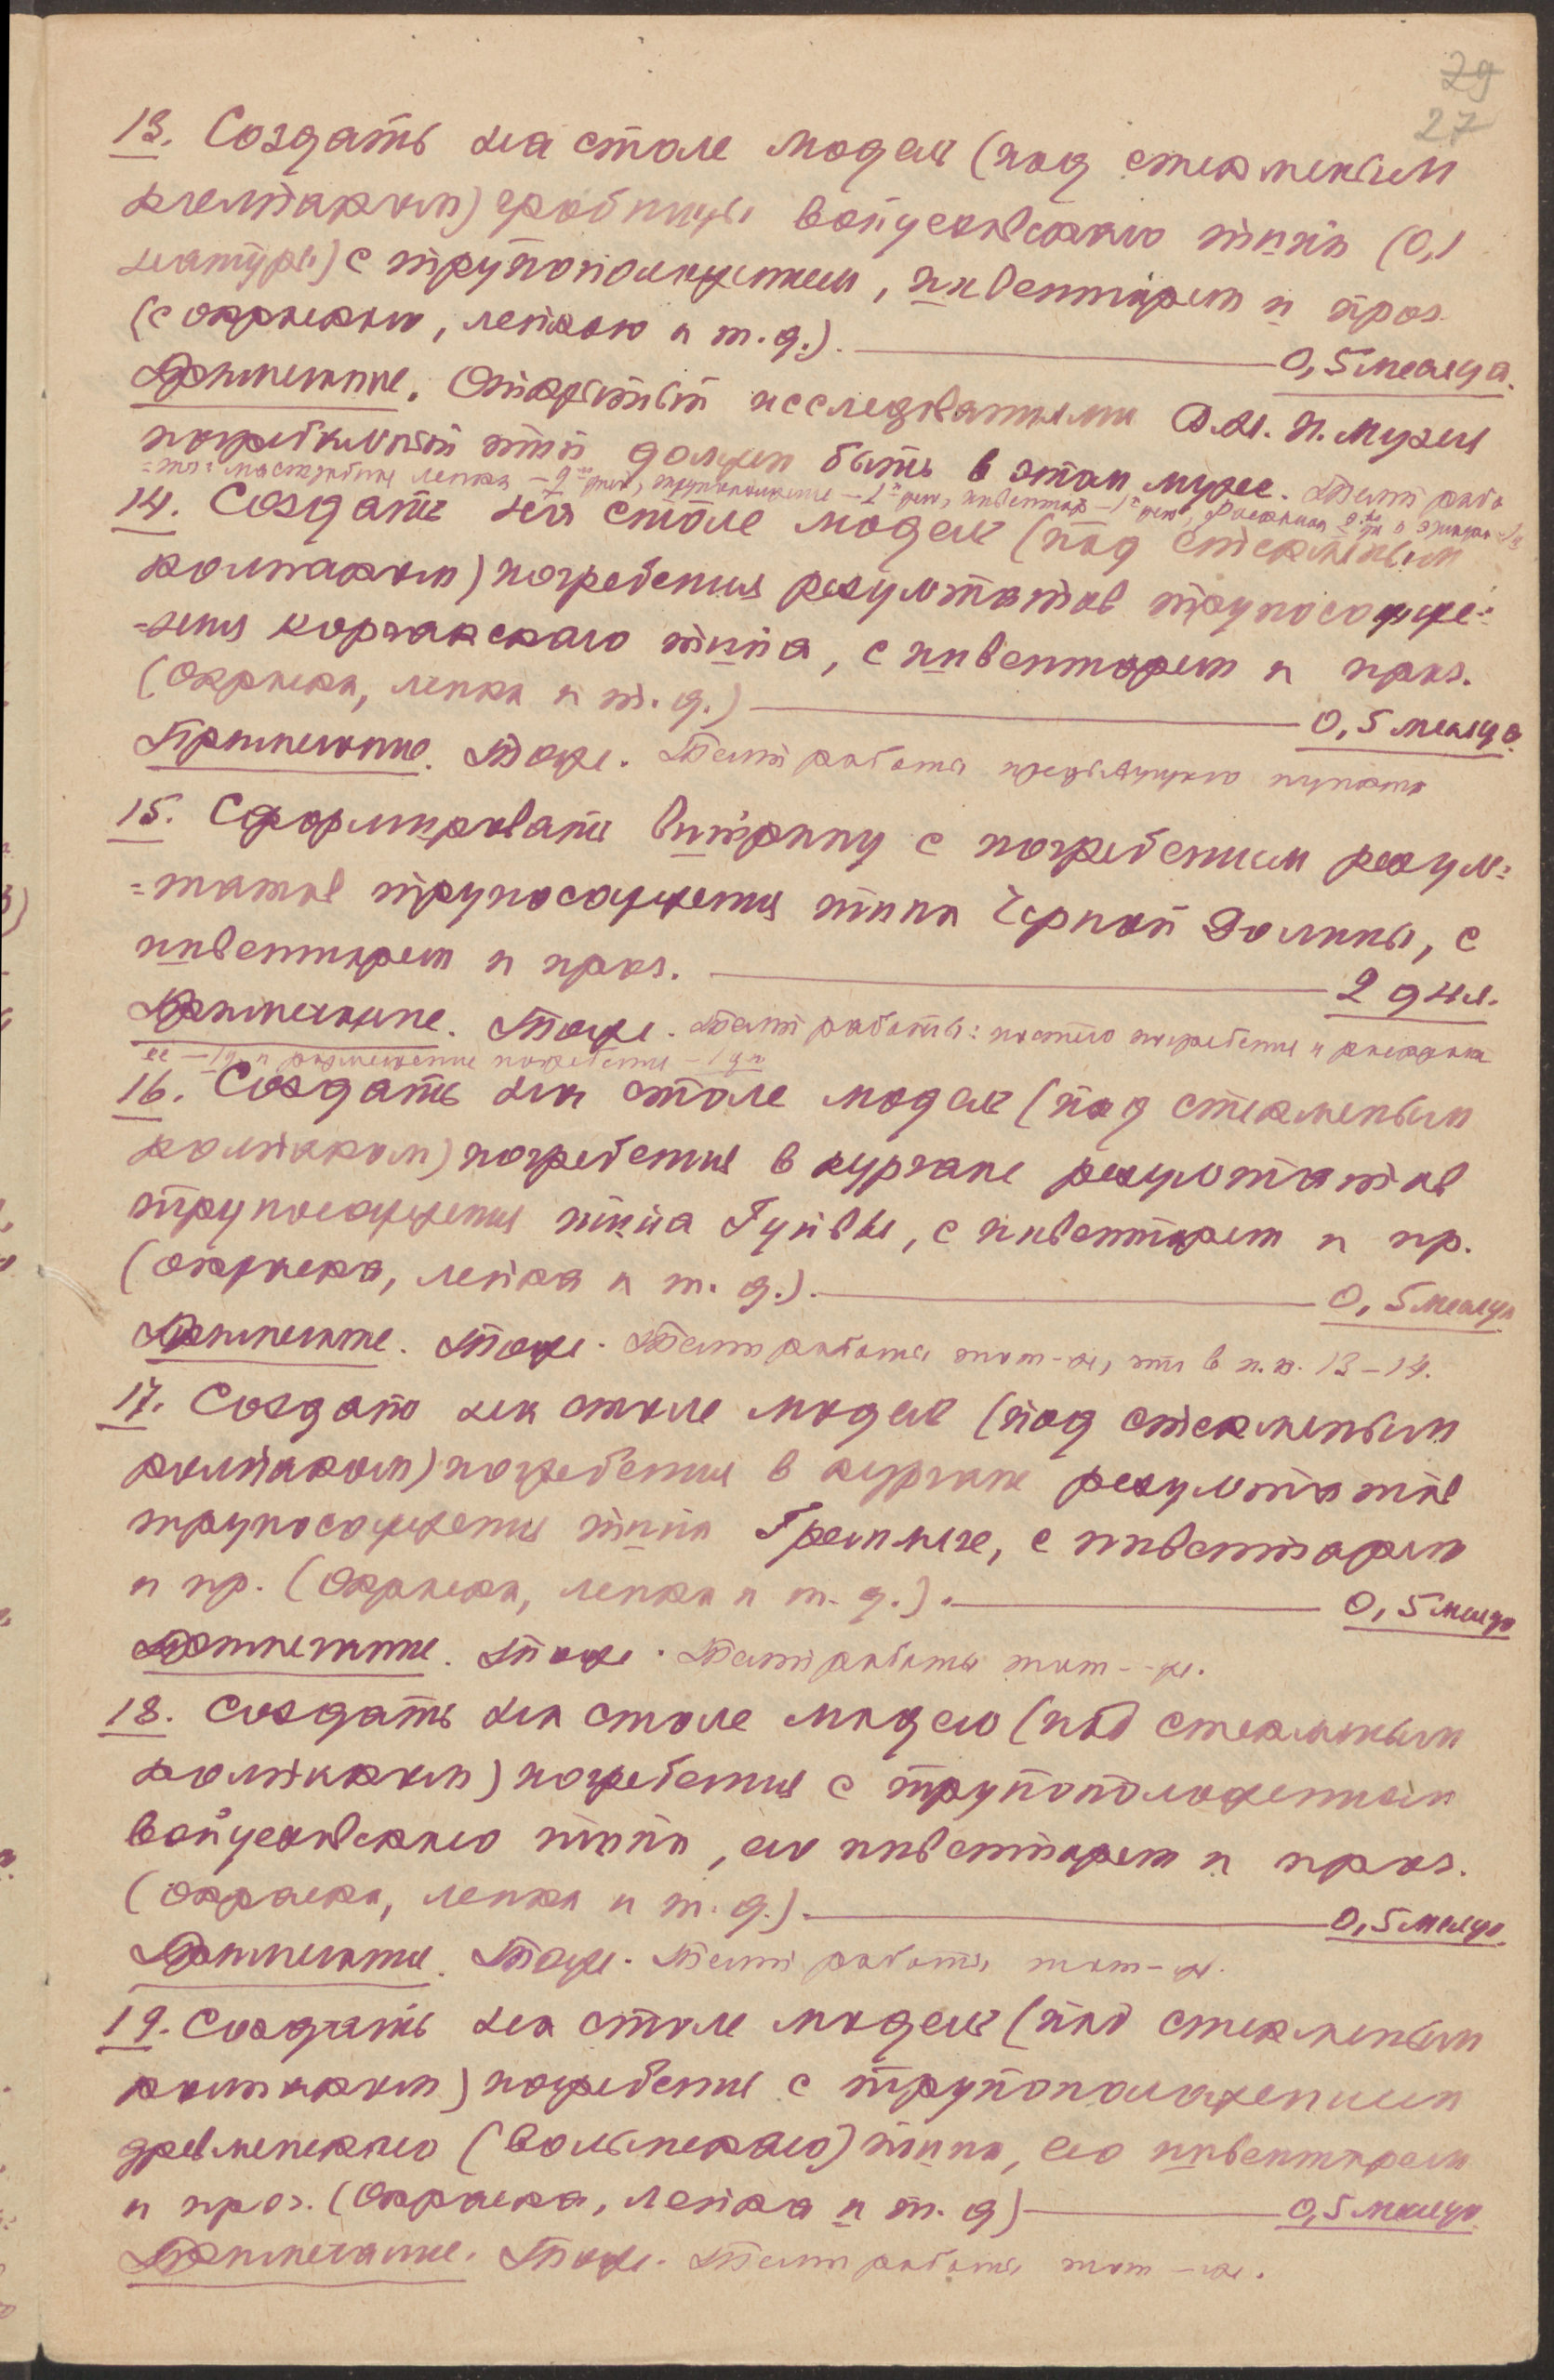 29
27
13. Создать на столе модель (под стеклянным
колпаком) гробницы войцеховского типа (0,1
натуры) с трупоположением, инвентарем и проч.
(с окраскою, лепкою и т. д.). 0,5 месяца.
Примечание. Открытый исследованиями музея
погребальный тип должен быть в этом музее. Темп рабо
14. Создать на столе модель (под стеклянным
колпаком) погребения результатов трупосожже-
=ния корчакского типа, с инвентарем и проч.
(Окраска, лепка и т. д.) 0,5 месяца.
Примечание. Тоже. Темп работы предыдущего пункта
15. Сформировать витрину с погребением резуль=
=татов трупосожжения типа Черной Долины, с
инвентарем и проч. 2 дня.
Примечание. Тоже. Темп работы: погребения и раскраска
ее – 1 д. и размещение погребения – 1 дн
16. Создать на столе модель (под стеклянным
колпаком) погребения в кургане результатов
трупосожжения типа Гуйвы, с инвентарем и пр.
(Окраска, лепка и т. д.). 0,5 месяца
Примечание. Тоже. Темп работы тот-же, что в п.п. 13–14.
17. Создать на столе модель (под стеклянным
колпаком) погребения в кургане результатов
трупосожжения типа с инвентарем
и пр. (Окраска, лепка и т. д.). 0,5 месяца
Примечание. Тоже. Темп работы тот--же.
18. Создать на столе модель (под стеклянным
колпаком) погребения с трупоположением
войцеховского типа, его инвентарем и проч.
(Окраска, лепка и т. д.). 0,5 месяца.
Примечание. Тоже. Темп работы тот-же.
19. Создать на столе модель (под стеклянным
колпаком) погребения с трупоположением
древлянского (волынского) типа, его инвентарем
и проч. (Окраска, лепка и т. д) 0,5 месяца
Примечание. Тоже. Темп работы тот-же.